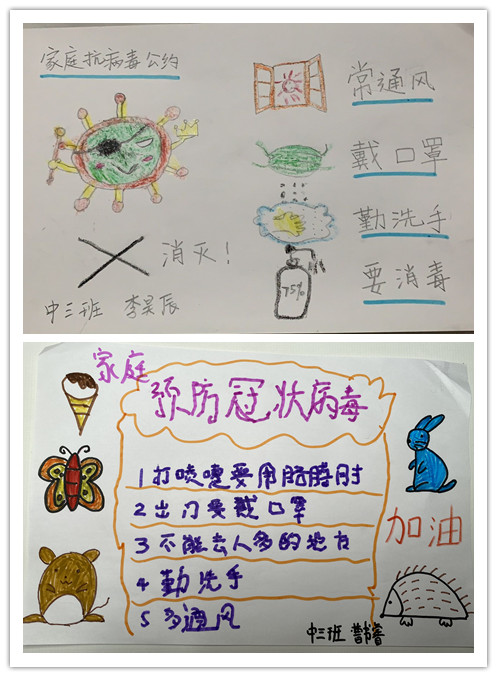 家庭抗病毒公约
常通风
戴口罩
勤洗手
75%
要消毒
消灭!
中三班 李昊辰
家庭
预防冠状病毒
1 打喷嚏要用胳膊肘
2 出门要戴口罩
3 不能去人多的地方
4 勤洗手
5 多通风
加油
中三班